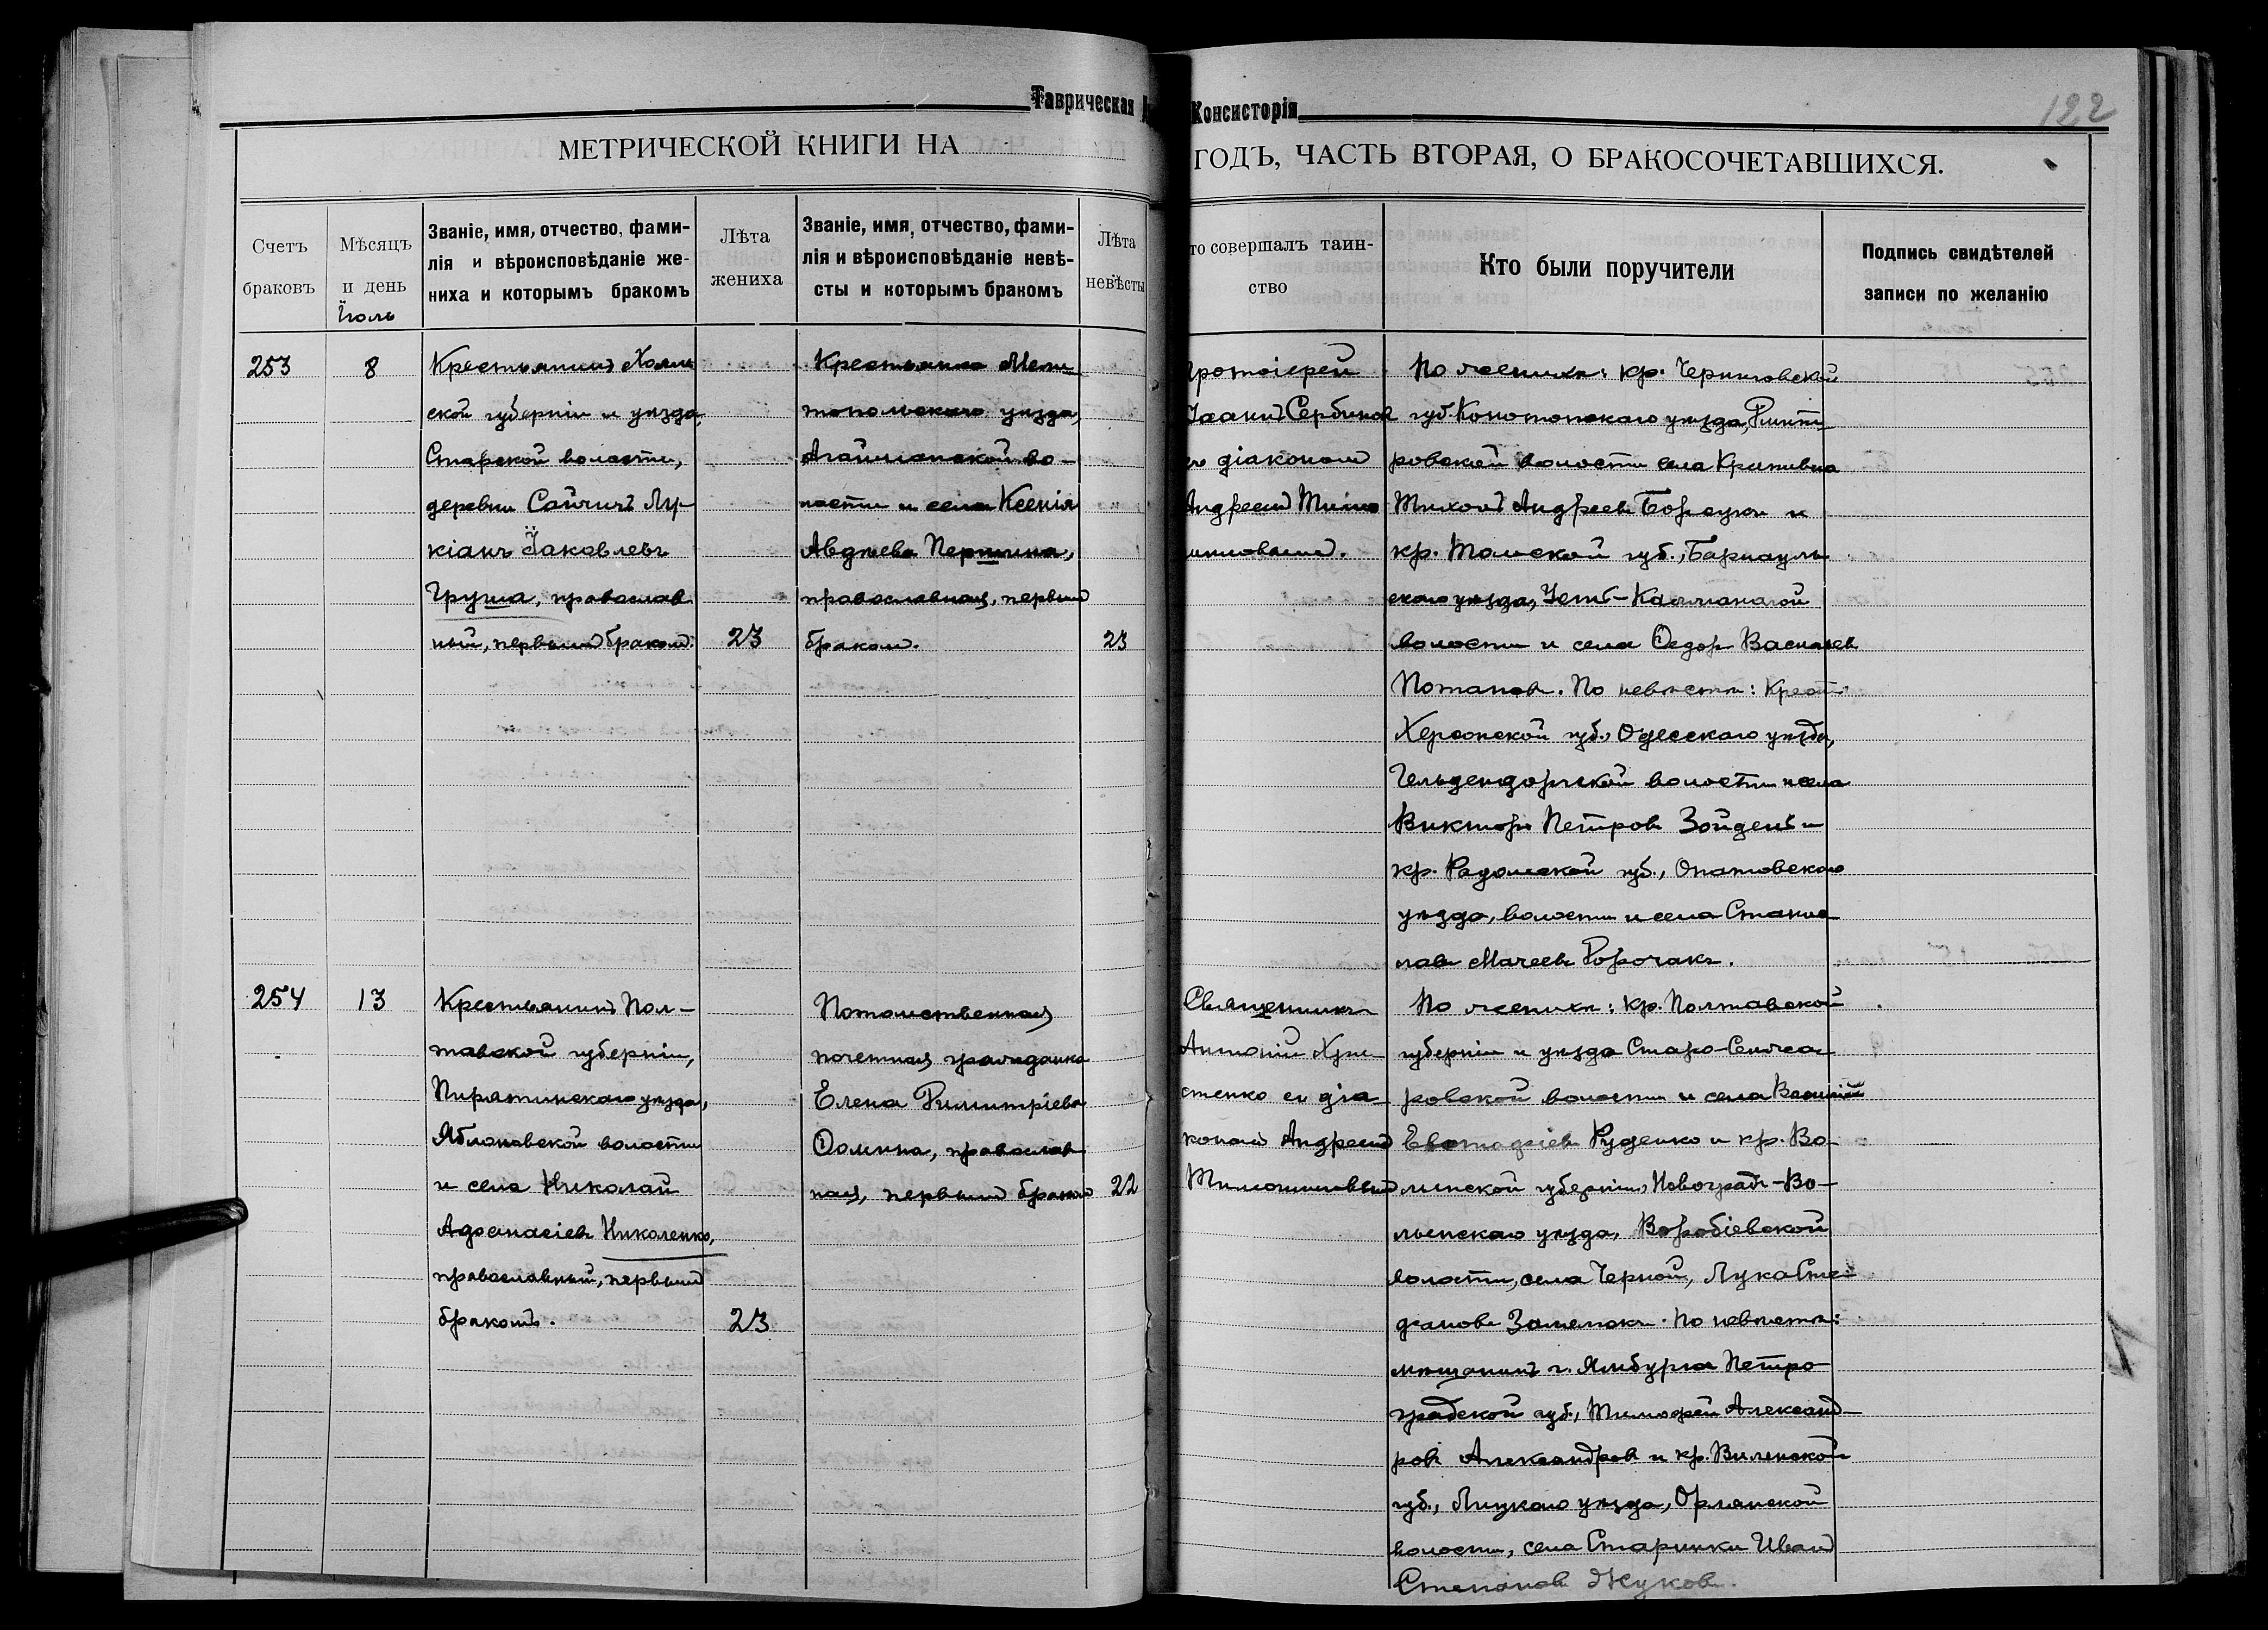 Таврическая
Консисторія
122
МЕТРИЧЕСКОЙ КНИГИ НА
ГОДЪ, ЧАСТЬ ВТОРАЯ, О БРАКОСОЧЕТАВШИХСЯ.
Счетъ браковъ
Мѣсяцъ и день
Званіе, имя, отчество, фами-
лія и вѣроисповѣданіе же-
ниха и которымъ бракомъ
Лѣта жениха
Званіе, имя, отчество, фами-
лія и вѣроисповѣданіе невѣ-
сты и которымъ бракомъ
Лѣта невѣсты
то совершалъ таин-
ство
Кто были поручители
Подпись свидѣтелей
записи по желанію
Іюль
253
8
Крестьянинъ Холм
ской губерніи и уѣзда,
волости,
деревни Лу-
кіанъ Іаковлевъ
Груша, православ
ный, первымъ бракомъ.
23
Крестьянка Мели
топольскаго уѣзда,
Агайманской во-
лости и села Ксенія
Авдѣева
православная, первымъ
бракомъ.
23
протоіерей
Іоаннъ Сербинов
съ діакономъ
Андреемъ Тимо
шиновымъ.
По женихѣ: кр. Черниговской
губ. Конотопскаго уѣзда, Дмит
ровской волости села
Тихонъ Андреевъ и
кр. Томской губ., Барнауль
скаго уѣзда, Усть-Калманской
волости и села Ѳедоръ Васильев
Потаповъ. По невѣстѣ: крест.
Херсонской губ., Одесскаго уѣзда,
волости и села
Викторъ Петровъ Зойденъ и
кр. Радомской губ., Опатовскаго
уѣзда, волости и села Станис
лавъ
254
13
Крестьянинъ Пол-
тавской губерніи,
Пирятинскаго уѣзда,
Яблоновской волости
и села Николай
Афанасіевъ Николенко,
православный, первымъ
бракомъ.
23
Потомственная
почетная гражданка
Елена Димитріева
Ѳомина, православ
ная, первымъ бракомъ
22
Священникъ
Антоній Хри
стенко съ діа-
кономъ Андреемъ
Тимошиновымъ
По женихѣ: кр. Полтавской
губерніи и уѣзда Старо-Сенжа
ровской волости и села Василій
Евстафіевъ Руденко и кр. Во-
лынской губерніи, Новоградъ-Во-
лынскаго уѣзда,
волости, села Черной, Лука Сте
фановъ По невѣстѣ:
мѣщанинъ г. Ямбурга Петро
градской губ., Тимофей Александ-
ровъ Александровъ и кр. Виленской
губ., Лидскаго уѣзда, Орлянской
волости, села Старинки Иванъ
Степановъ Жуковъ.